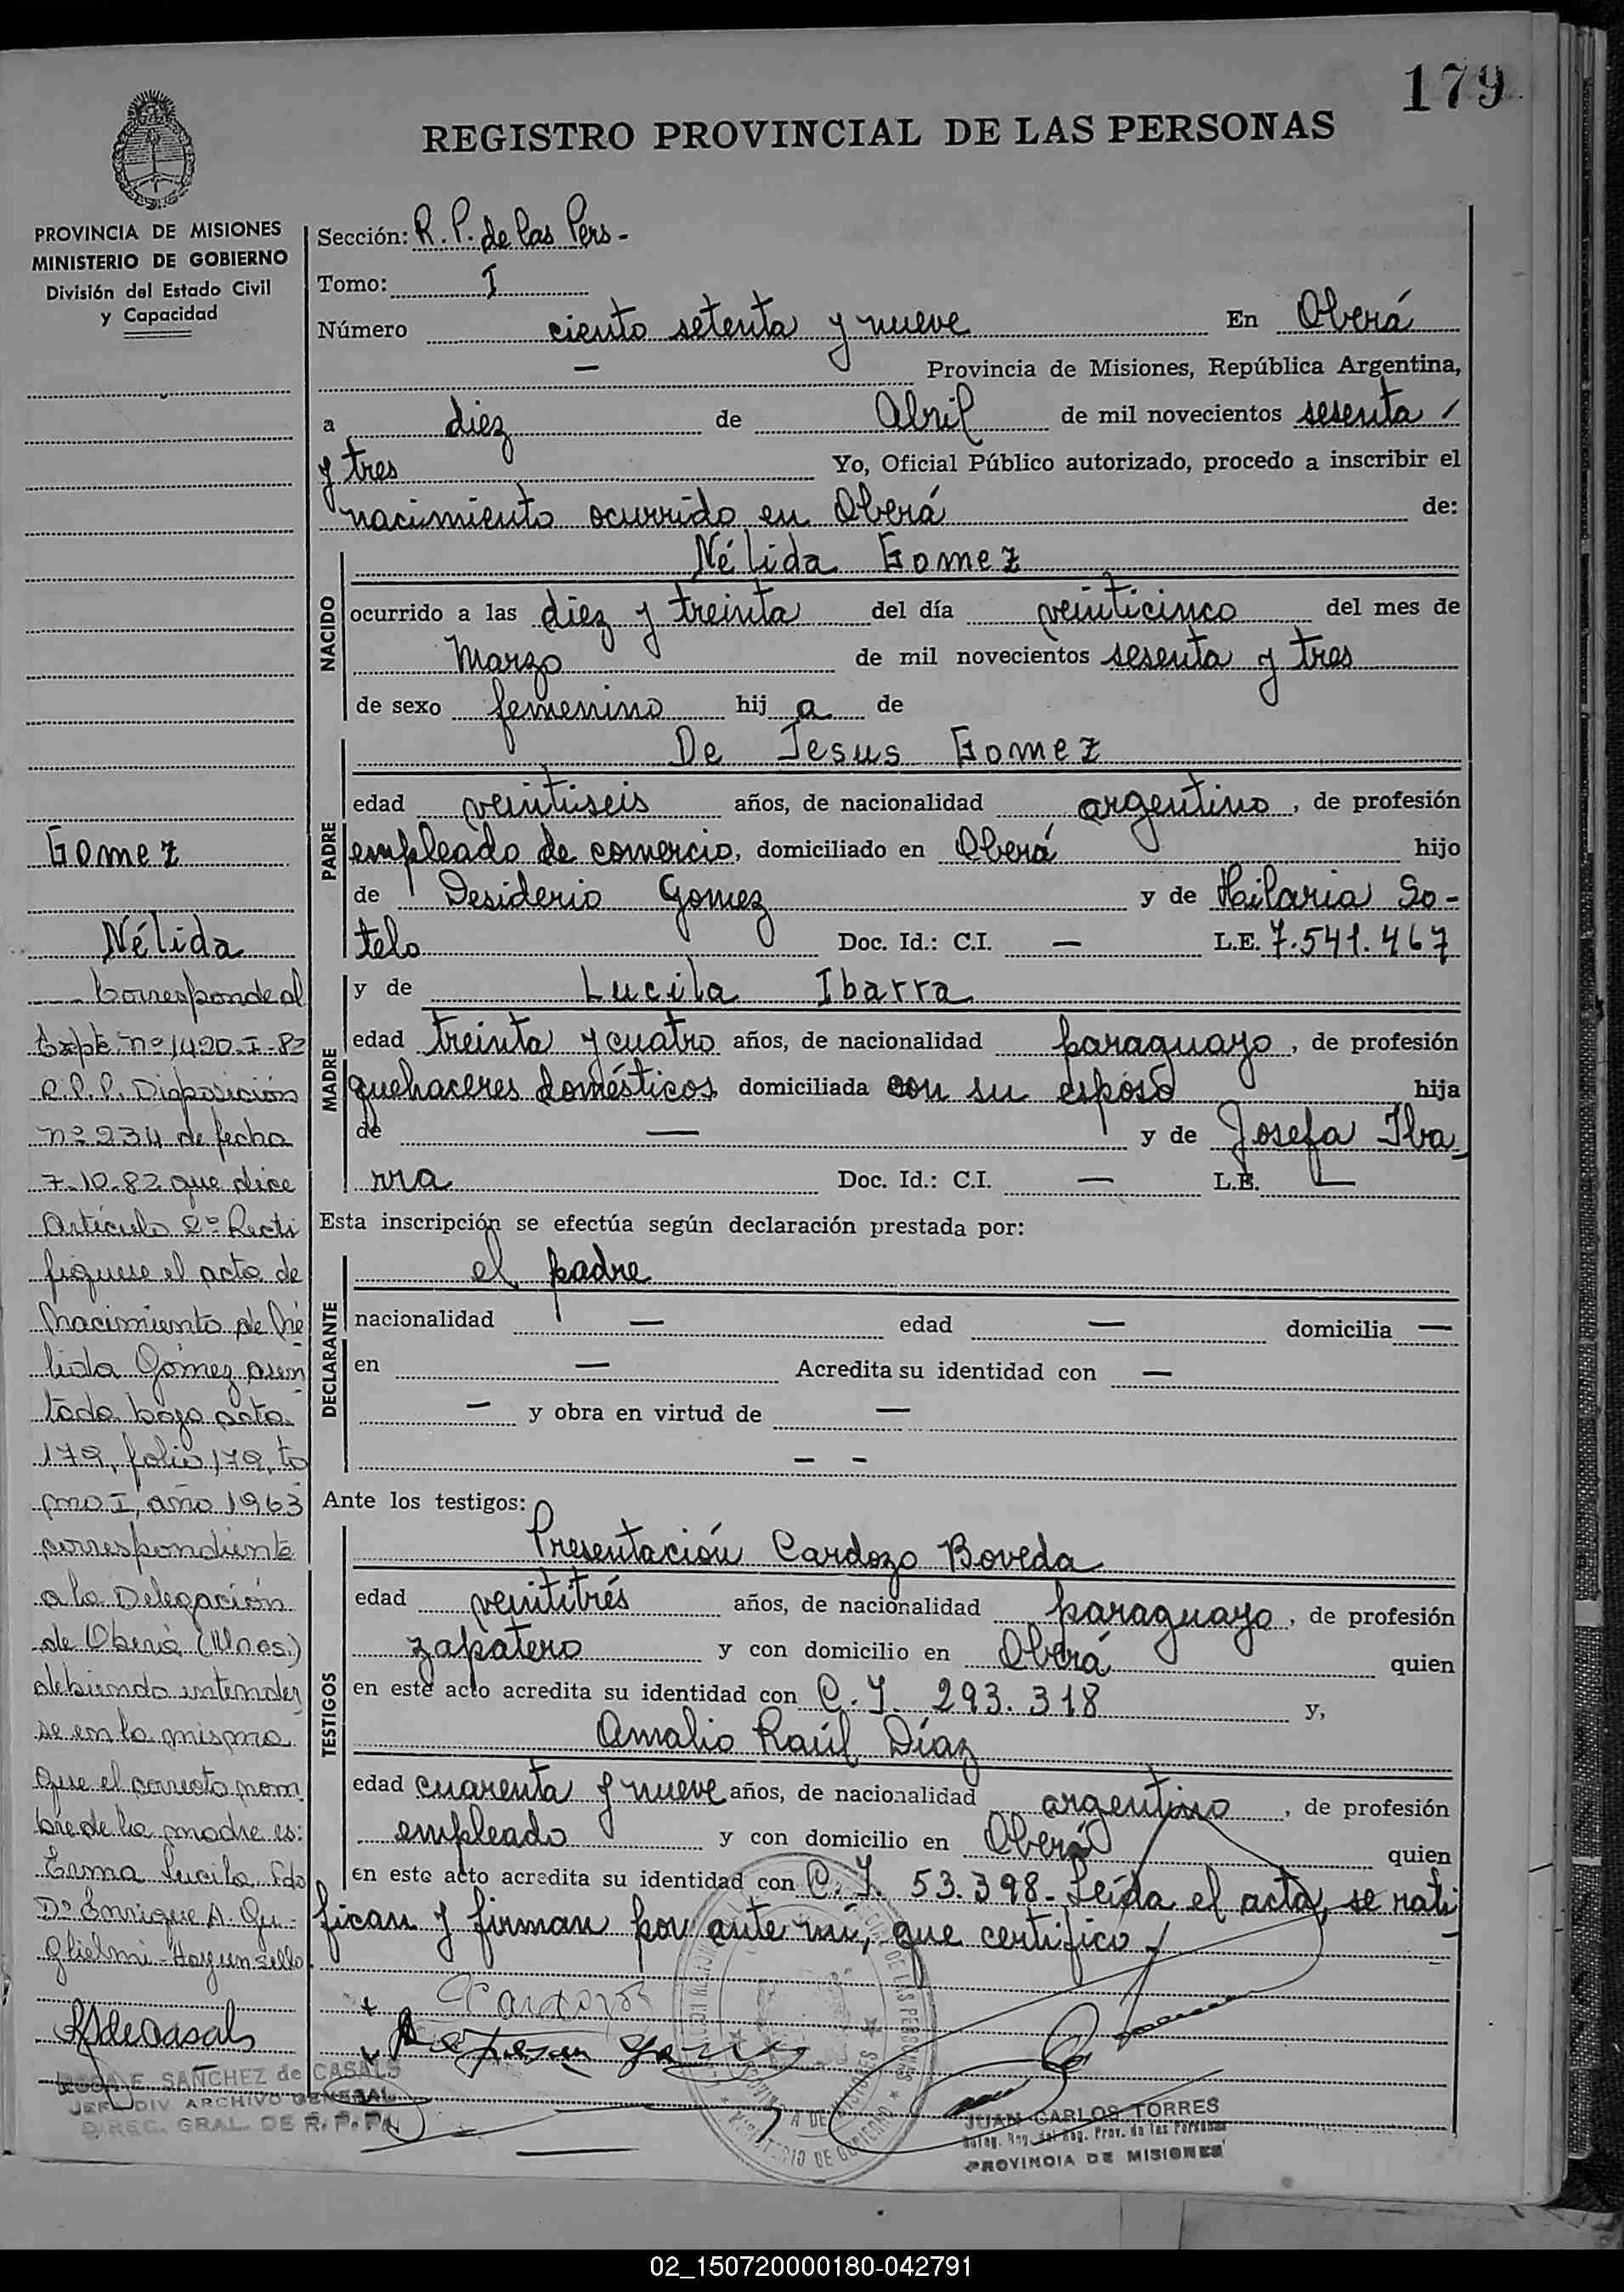 179
REGISTRO PROVINCIAL DE LAS PERSONAS
PROVINCIA DE MISIONES
MINISTERIO DE GOBIERNO
División del Estado Civil
y Capacidad
Sección: R. P. de las Pers -
Tomo: I
Número ciento setenta y nueve En Oberá
— Provincia de Misiones, República Argentina,
a diez de Abril de mil novecientos sesenta /
y tres Yo, Oficial Público autorizado, procedo a inscribir el
nacimiento ocurrido en Oberá de:
NACIDO
Nélida Gomez
ocurrido a las diez y treinta del día veinticinco del mes de
Marzo de mil novecientos sesenta y tres
de sexo femenino hij a de
PADRE
De Jesus Gomez
edad veintiseis años, de nacionalidad argentino, de profesión
empleado de comercio, domiciliado en Oberá hijo
de Desiderio Gomez y de Hilaria So-
telo Doc. Id.: C.I. — L.E. 7.541.467
MADRE
y de Lucila Ibarra
edad treinta y cuatro años, de nacionalidad paraguayo, de profesión
quehaceres domésticos domiciliada con su esposo hija
de — y de Josefa Iba-
rra Doc. Id.: C.I. — L.E. —
Esta inscripción se efectúa según declaración prestada por:
DECLARANTE
el padre
nacionalidad — edad — domicilia —
en — Acredita su identidad con —
— y obra en virtud de —
— —
Ante los testigos:
TESTIGOS
Presentación Cardozo Boveda
edad veintitrés años, de nacionalidad paraguayo, de profesión
zapatero y con domicilio en Oberá quien
en este acto acredita su identidad con C. I. 293.318 y,
Amalio Raúl Díaz
edad cuarenta y nueve años, de nacionalidad argentino, de profesión
empleado y con domicilio en Oberá quien
en este acto acredita su identidad con C. I. 53.398 - Leída el acta, se rati-
fican y firman por ante mí, que certifico -
Gomez
Nélida
Corresponde al
Expte nº 1420-I-82
R.P.P. Disposición
nº 234 de fecha
7-10-82 que dice
Artículo 2º Recti
fiquese el acta de
Nacimiento de Né
lida Gómez asen
tada bajo acta
179, folio 179, to
mo I, año 1963
correspondiente
a la Delegación
de Oberá (Mnes.)
debiendo entender
se en la misma
que el correcto nom
bre de la madre es:
Erma Lucila. Fdo
Dº Enrique A. Gu-
glielmi - Hay un sello
RSdeCasals
E. SANCHEZ de CASALS
JEFE DIV ARCHIVO GENERAL
DIREC. GRAL. DE R. P. P.
JUAN CARLOS TORRES
Deleg. Reg. del Reg. Prov. de las Personas
PROVINCIA DE MISIONES
MINISTERIO DE GOBIERNO
02_150720000180-042791